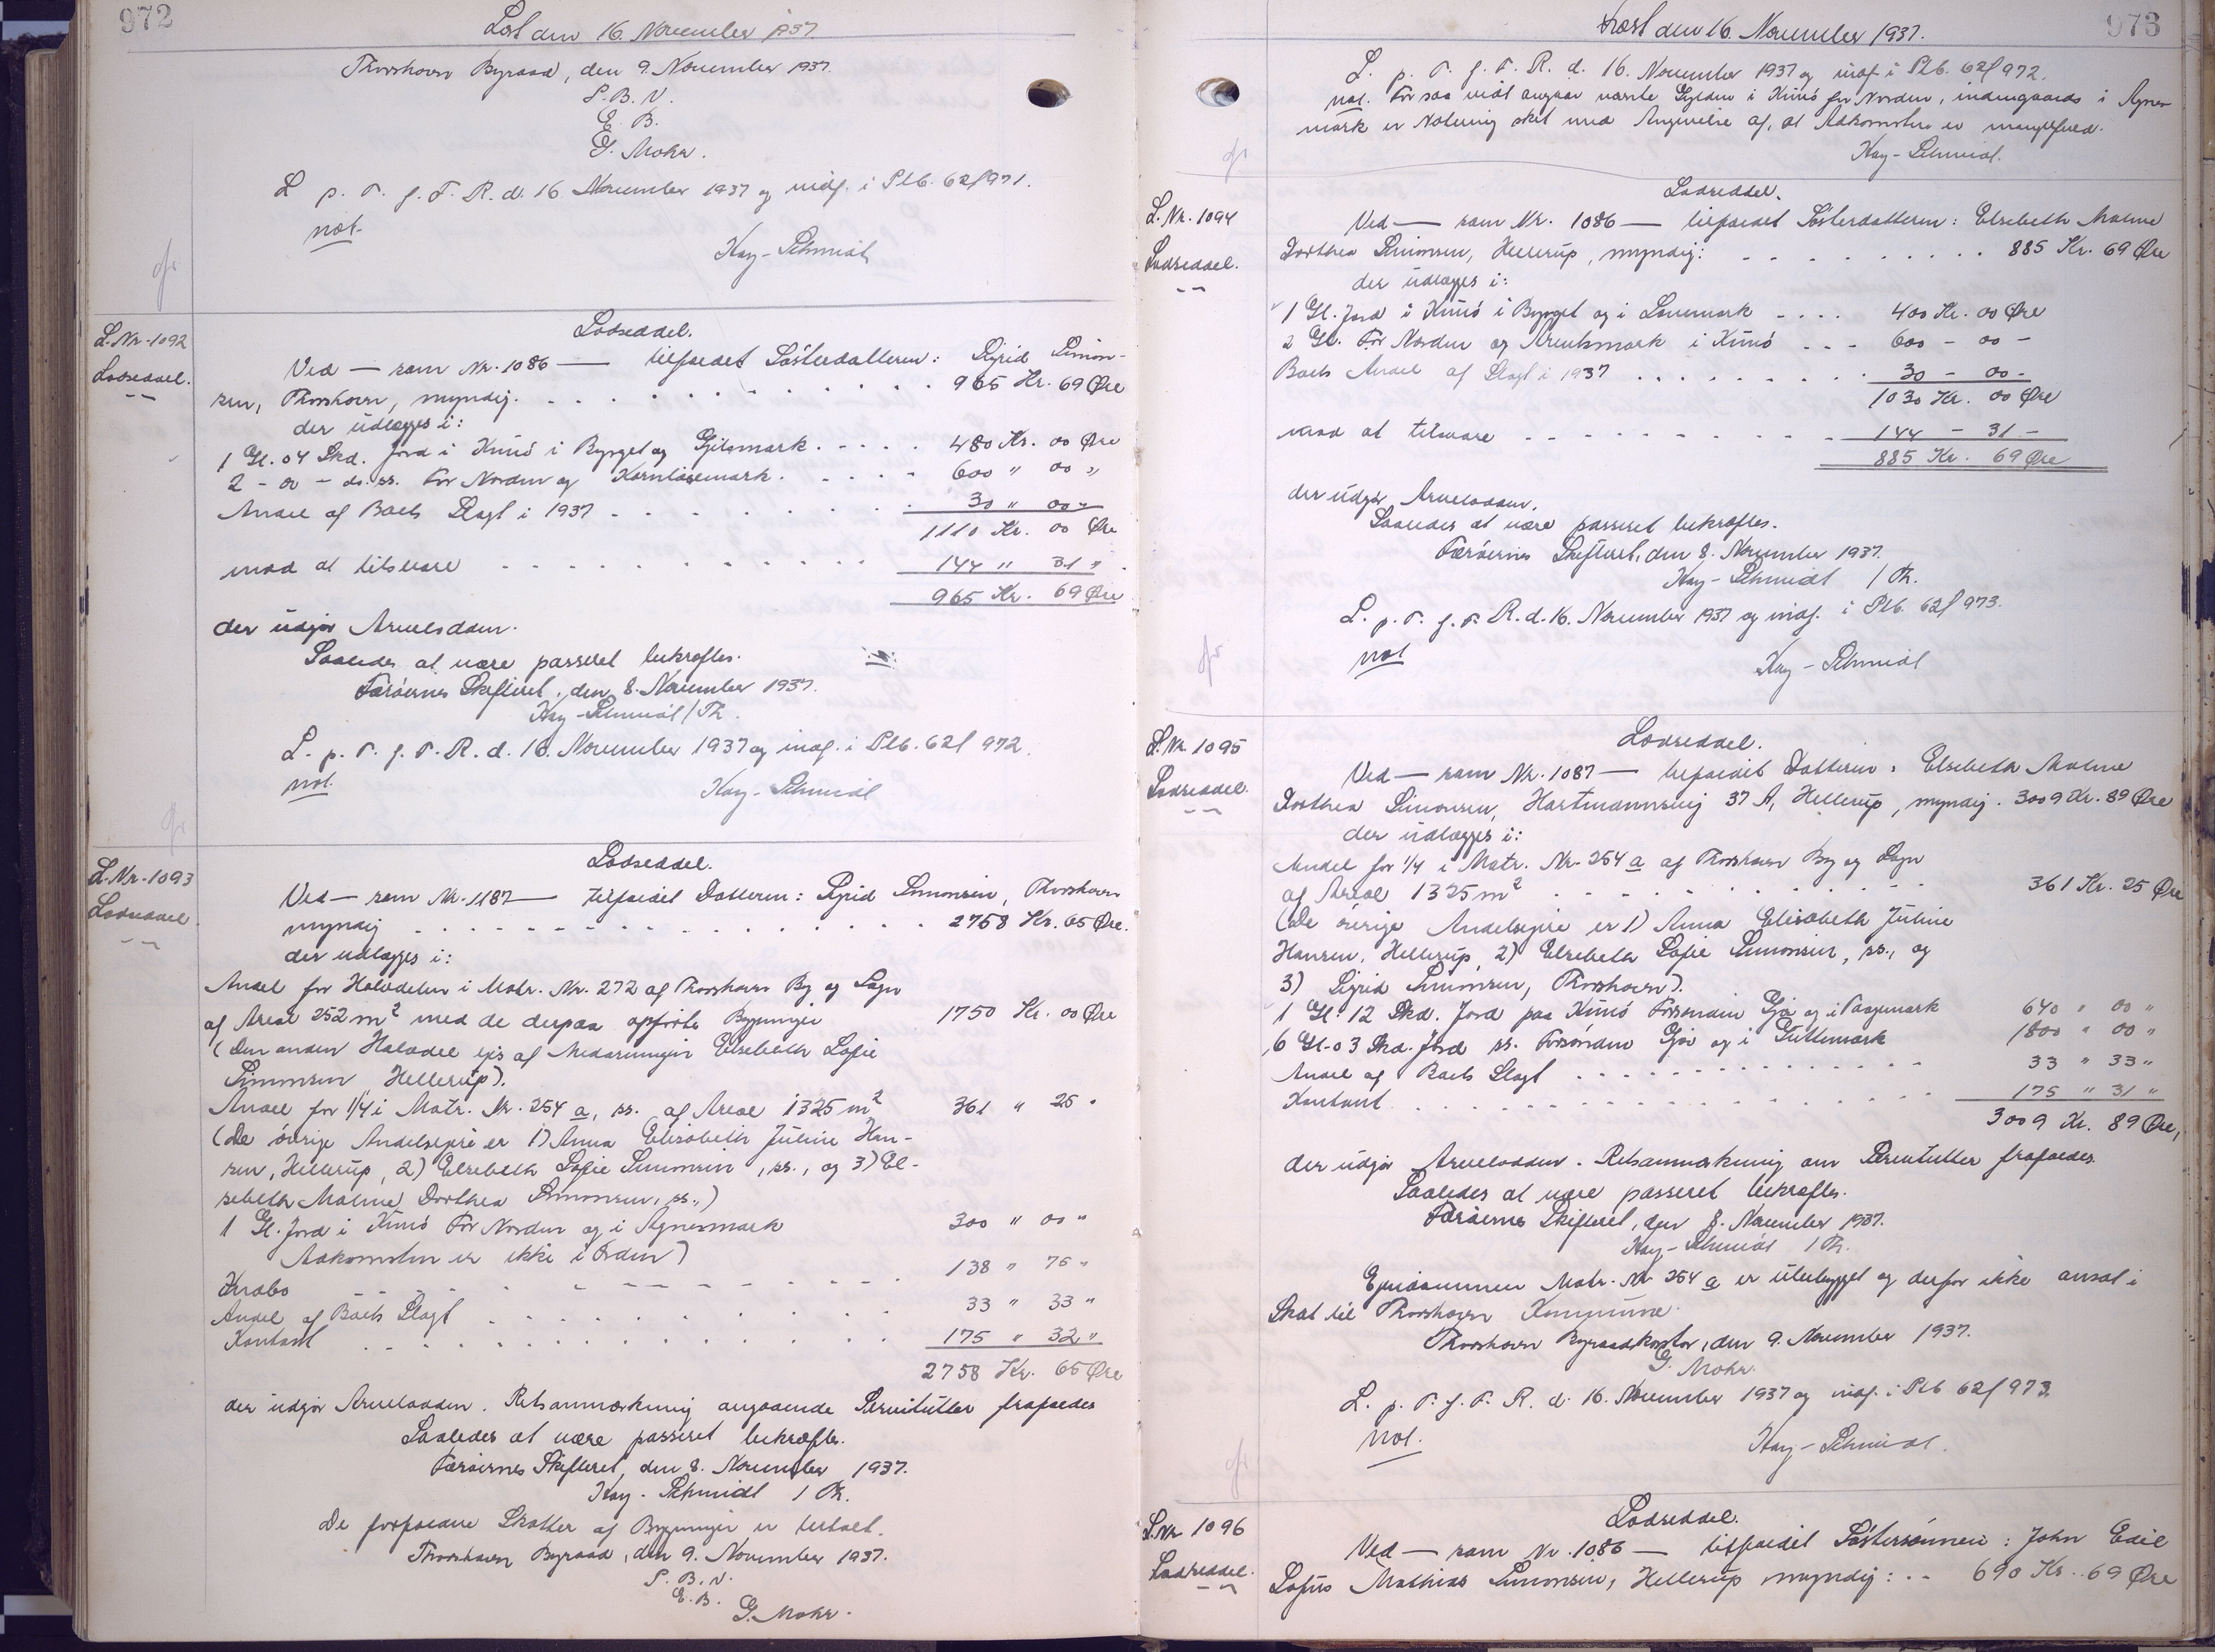 972
Læst den 16. November 1937.
Thorshavn Byraad, den 9. November 1937.
P.B.V.
E. B.
G. Mohr.
L. p. T. f. F. R. d. 16. November 1937 og indf. i Ptb. 62f 971.
not.
Kay-Schmidt
L. Nr. 1092
Lodseddel.
Lodseddel.
Ved — som Nr. 1086 — tilfaldet Søsterdatteren: Sigrid Simon-
sen, Thorshavn, myndig. 965 Kr. 69 Øre
der udlægges i:
1 Gl. 04 Skd. Jord i Kunø i Bygget og Gjilsmark. 480 Kr. 00 Øre
2 - 00 - do. ss. For Nordur og Kornløsemark. 600 " 00 "
Andel af Baets Slagt i 1937 30 " 00 "
1110 Kr. 00 Øre
mod at tilsvare 144 " 31 "
965 Kr. 69 Øre
der udgør Arvelodden.
Saaledes at være passeret bekræftes.
Færøernes Skifteret, den 8. November 1937.
Kay-Schmidt / Th.
L. p. T. f. F. R. d. 16. November 1937 og indf. i Ptb. 62f 972.
not.
Kay-Schmidt
L. Nr. 1093
Lodseddel
Lodseddel.
Ved — som Nr. 1187 — tilfaldet Datteren: Sigrid Simonsen, Thorshavn
myndig 2758 Kr. 65 Øre.
der udlægges i:
Andel for Halvdelen i Matr. Nr. 272 af Thorshavn By og Sogn
af Areal 252 m² med de derpaa opførte Bygninger 1750 Kr. 00 Øre
(Den anden Halvdel ejes af Medarvingen Elsebeth Sofie
Simonsen Hellerup).
Andel for 1/4 i Matr. Nr. 254 a, ss. af Areal 1325 m² 361 " 25 "
(De øvrige Andelsejere er 1) Anna Elisabeth Juline Han-
sen, Hellerup, 2) Elsebeth Sofie Simonsen, ss., og 3) El-
sebeth Malene Dorthea Simonsen, ss.,)
1 Gl. Jord i Kunø For Nordur og i Agnesmark 300 " 00 "
Adkomsten er ikke i Orden)
Indbo 138 " 75 "
Andel af Baets Slagt 33 " 33 "
Kontant 175 " 32 "
2758 Kr. 65 Øre
der udgør Arvelodden. Retsanmærkning angaaende Servitutter frafaldes
Saaledes at være passeret bekræftes.
Færøernes Skifteret, den 8. November 1937.
Kay-Schmidt / Th.
De forfaldne Skatter af Bygninger er betalt.
Thorshavn Byraad, den 9. November 1937.
P.B.V.
E.B.
G. Mohr.
973
Læst den 16. November 1937.
L. p. T. f. F. R. d. 16. November 1937 og indf. i Ptb. 62f 972.
not. For saa vidt angaar nævnte Gylden i Kunø for Nordur, indengaards i Agnes-
mark er Notering sket med Angivelse af, at Adkomsten er mangelfuld.
Kay-Schmidt.
L. Nr. 1094
Lodseddel.
Lodseddel.
Ved — som Nr. 1086 — tilfaldet Søsterdatteren: Elsebeth Malene
Dorthea Simonsen, Hellerup, myndig: 885 Kr. 69 Øre
der udlægges i:
1 Gl. Jord i Kunø i Bygget og i Lonemark 400 Kr. 00 Øre
2 Gl. For Nordur og Arentsmark i Kunø 600 - 00 -
Baets Andel af Slagt i 1937 30 - 00 -
1030 Kr. 00 Øre
mod at tilsvare 144 - 31 -
885 Kr. 69 Øre
der udgør Arvelodden.
Saaledes at være passeret bekræftes.
Færøernes Skifteret, den 8. November 1937.
Kay-Schmidt / Th.
L. p. T. f. F. R. d. 16. November 1937 og indf. i Ptb. 62f 973.
not
Kay-Schmidt
L. Nr. 1095
Lodseddel.
Lodseddel.
Ved — som Nr. 1087 — tilfaldet Datteren: Elsebeth Malene
Dorthea Simonsen, Hartmannsvej 37 A, Hellerup, myndig. 3009 Kr. 89 Øre
der udlægges i:
Andel for 1/4 i Matr. Nr. 254 a af Thorshavn By og Sogn
af Areal 1325 m² 361 Kr. 25 Øre
(De øvrige Andelsejere er 1) Anna Elisabeth Juline
Hansen, Hellerup, 2) Elsebeth Sofie Simonsen, ss., og
3) Sigrid Simonsen, Thorshavn).
1 Gl. 12 Skd. Jord paa Kunø Forsondum Gjo og i Paagemark 640 " 00 "
6 Gl. 03 Skd. Jord ss. Forsondum Gjo og i Guttemark 1800 " 00 "
Andel af Baets Slagt 33 " 33 "
Kontant 175 " 31 "
3009 Kr. 89 Øre,
der udgør Arvelodden. Retsanmærkning om Servitutter frafaldes.
Saaledes at være passeret bekræftes.
Færøernes Skifteret, den 8. November 1937.
Kay-Schmidt / Th.
Ejendommen Matr. Nr. 254 a er ubebygget og derfor ikke ansat i
Skat til Thorshavn Kommune.
Thorshavn Byraadskontor, den 9. November 1937.
G. Mohr.
L. p. T. f. F. R. d. 16. November 1937 og indf. i Ptb 62f 973.
not.
Kay-Schmidt.
L. Nr 1096
Lodseddel.
Lodseddel.
Ved — som Nr. 1086 — tilfaldet Søstersønnen: John Edil
Sofus Mathias Simonsen, Hellerup myndig: 690 Kr. 69 Øre